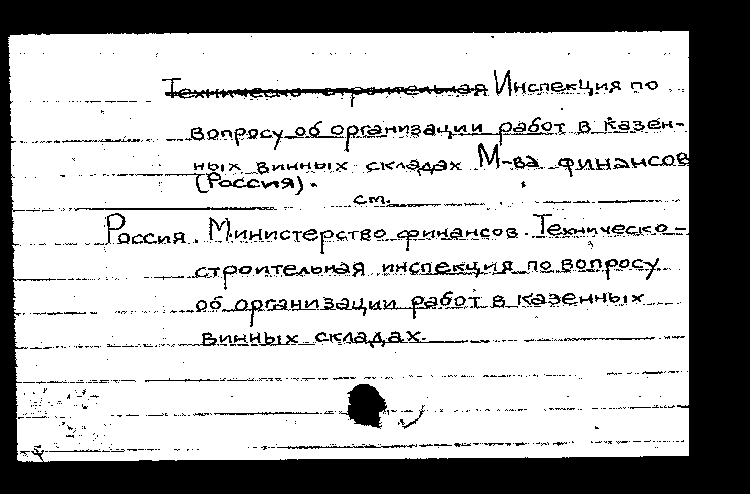 Техническо строительная Инспекция по
вопросу об организации работ в казен-
ных винных складах М-ва финансов
(Россия).
см.
Россия. Министерство финансов. Техническо-
строительная инспекция по вопросу
об организации работ в казенных
винных складах.